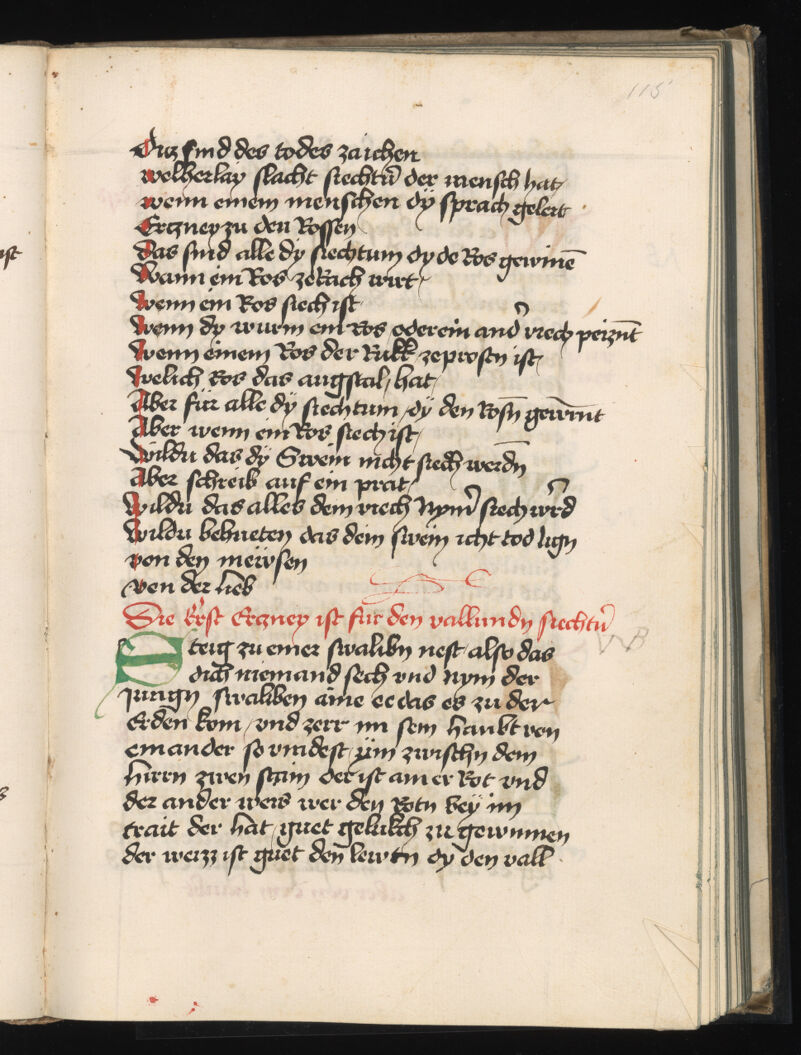 115
Daz sind des todes zaichen
welherlay slacht siechtū der mensch hat
wenn einem menschen dÿ sprach geleit
Ercznep zu den Rossen
Das sind alle dÿ siechtum dy de Ros gewinē
Wann ein Ros zeRäch wirt
Wenn ein Ros siech ist
Wenn dy wurm ein Ros oder ein and̄ viech peiznt
Wenn einem Ros der Rukk zeprosn ist
Welich Ros das augstal hat
Aber für alle dÿ siechtum dÿ den Rosn̄ gewinnt
Aber wenn ein Ros siech ist
Wildu das dÿ Swein nicht siech werdn̄
Aber schreib auf ein prat
Wildu das alles dem viech Nym̄ siech wr̄d
Wildu behueten das dein swein icht tod lign
von den mewsen
von der lieb
Die Erst Ercznep ist für den vallundn siechtū
Steig zu einer swalibn nest also das
dich niemand sech vnd nym der
Jungn swaliben aine ee das es zu der
Erden kom vnd zerr im sein haubt von
einander so vindest ym zwischn dem
hirrn zwen stain der ist ainer Rot vnd
der ander weis wer den Rotn bey im
trait der hat guet gelukch zu gewinnen
der weizz ist guet den lewtn dy den vall